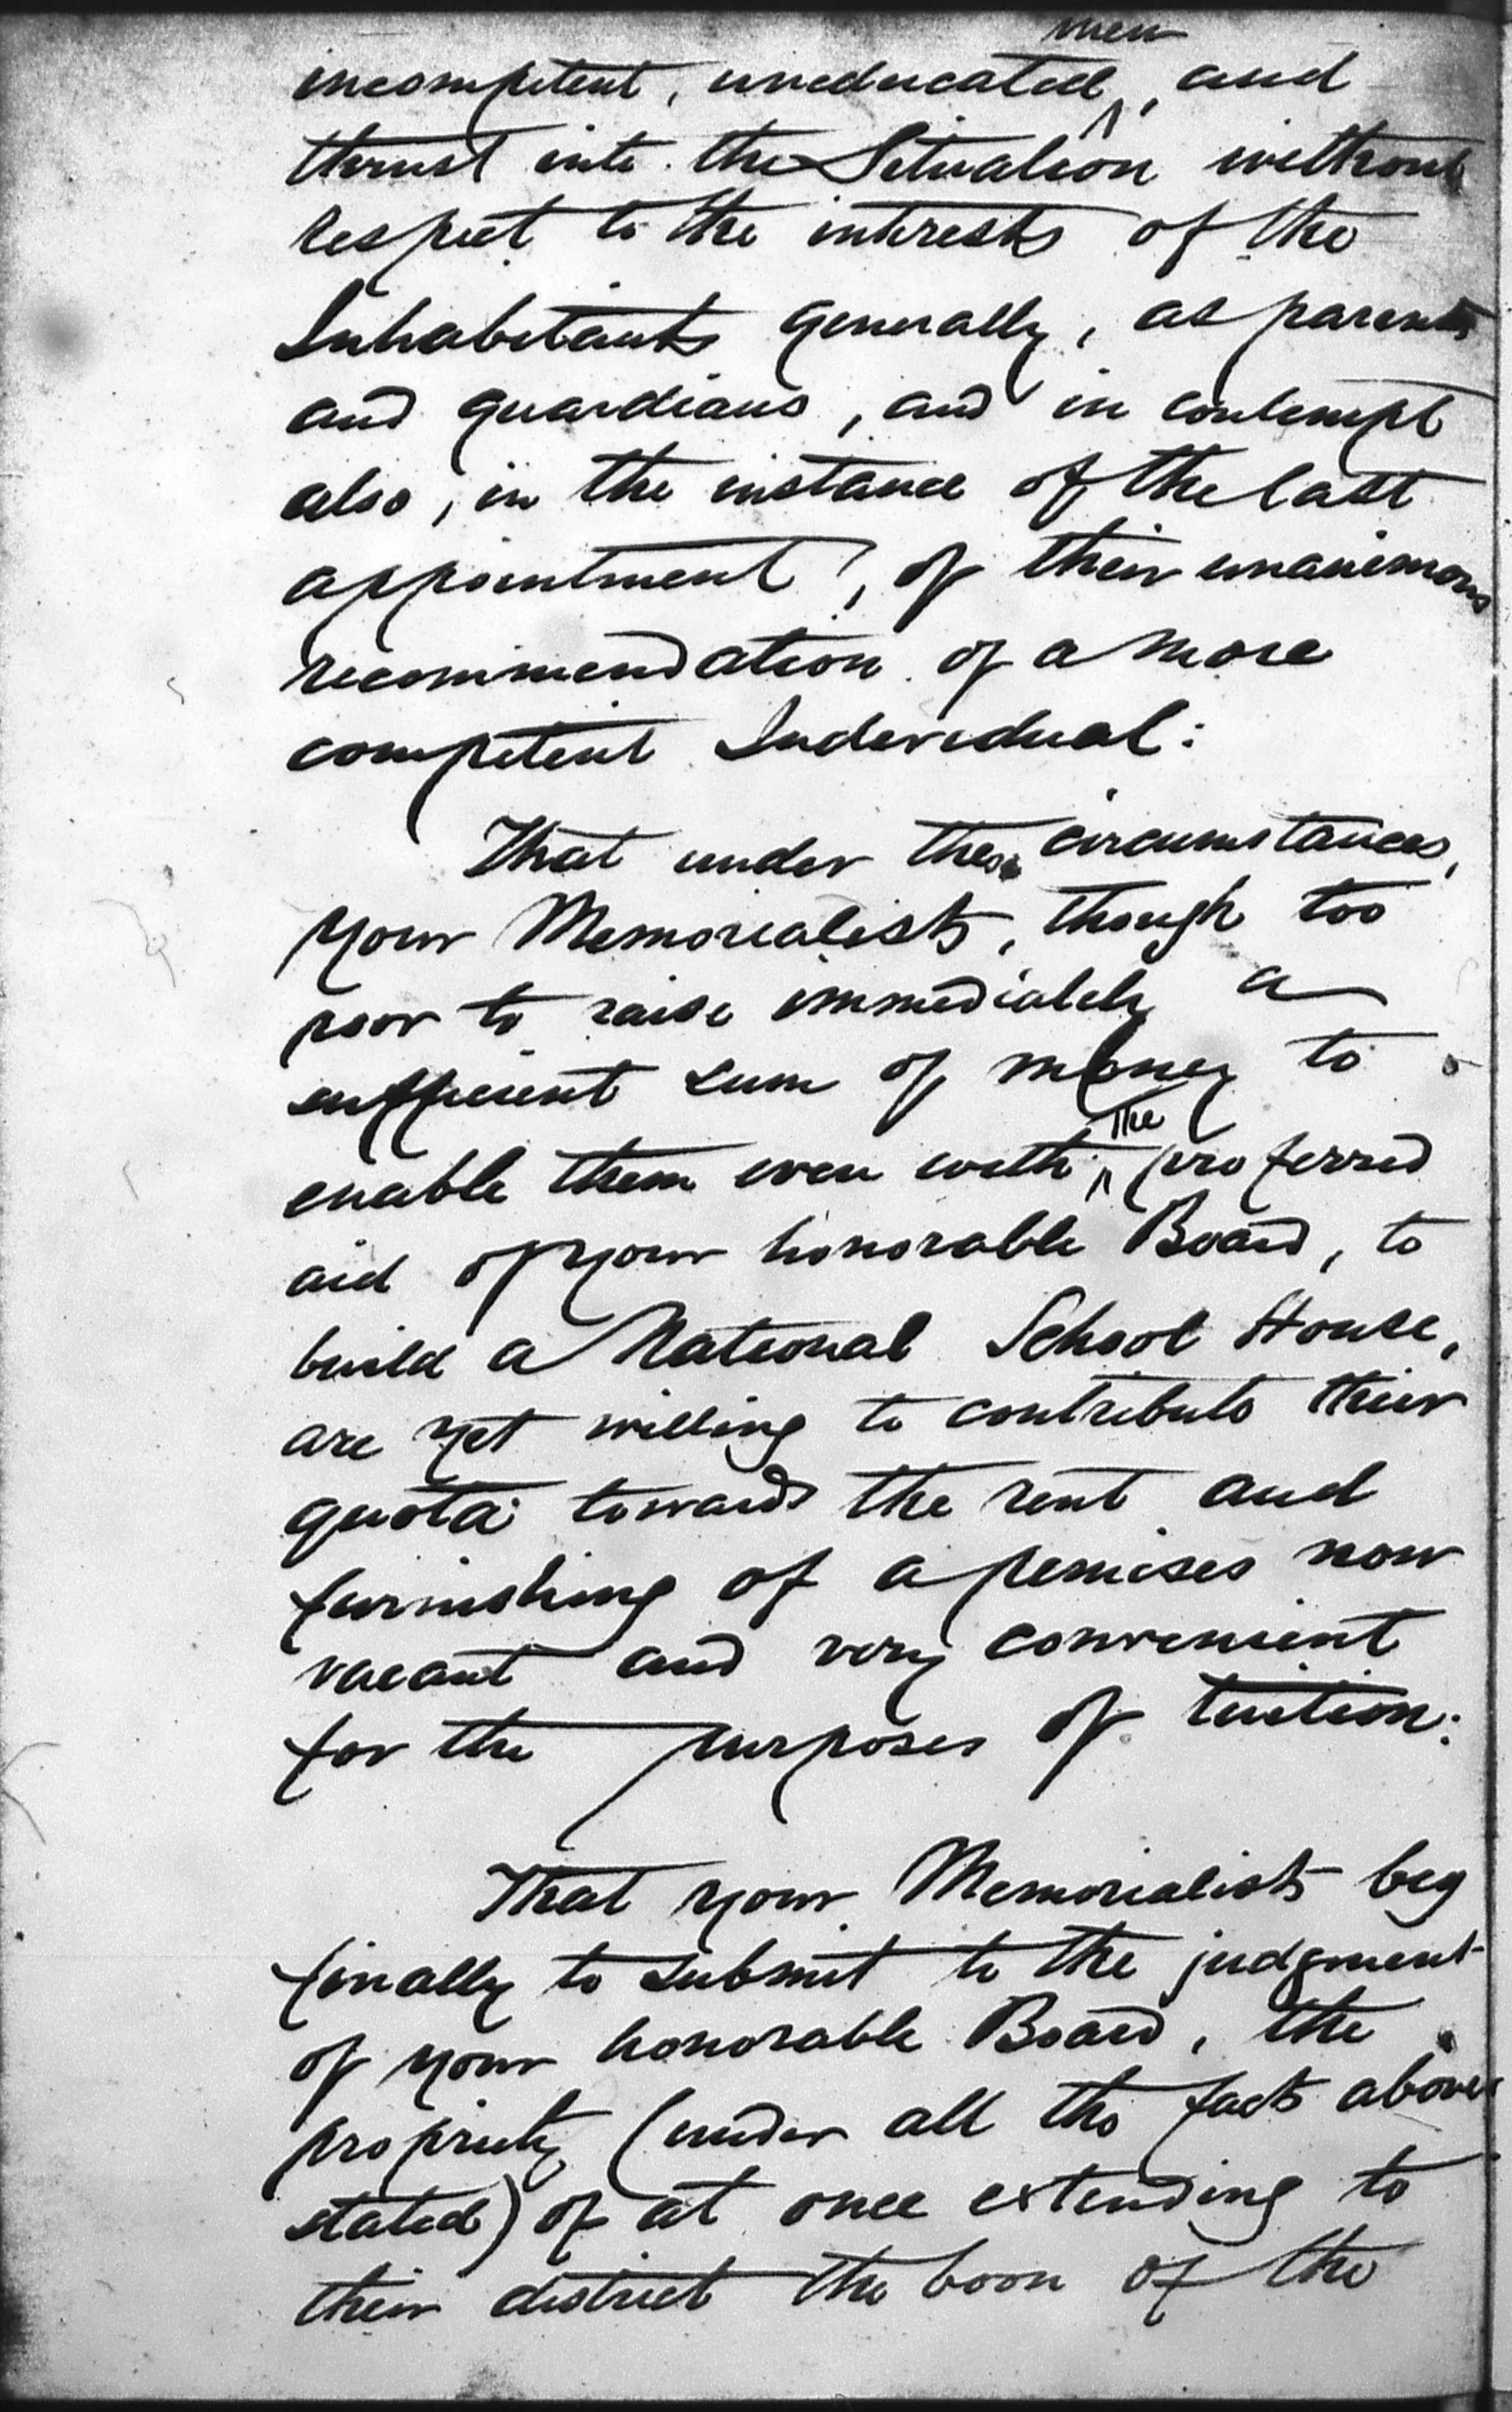 incompetent, uneducated men, and
thrust into the Situation without
respect to the interests of the
Inhabitants generally, as parents
and guardians, and in contempt
also, in the instance of the last
appointment, of their unanimous
recommendation of a more
competent Individual:
That under these circumstances,
your Memorialists, though too
poor to raise immediately a
sufficient sum of money to
enable them even with the proferred
aid of your honorable Board, to
build a National School House,
are yet willing to contribute their
quota towards the rent and
furnishing of a pemises now
vacant and very convenient
for the purposes of tuition:
That your Memorialists beg
finally to submit to the judgment
of your honorable Board, the
propriety (under all the facts above
stated) of at once extending to
their district the boon of the